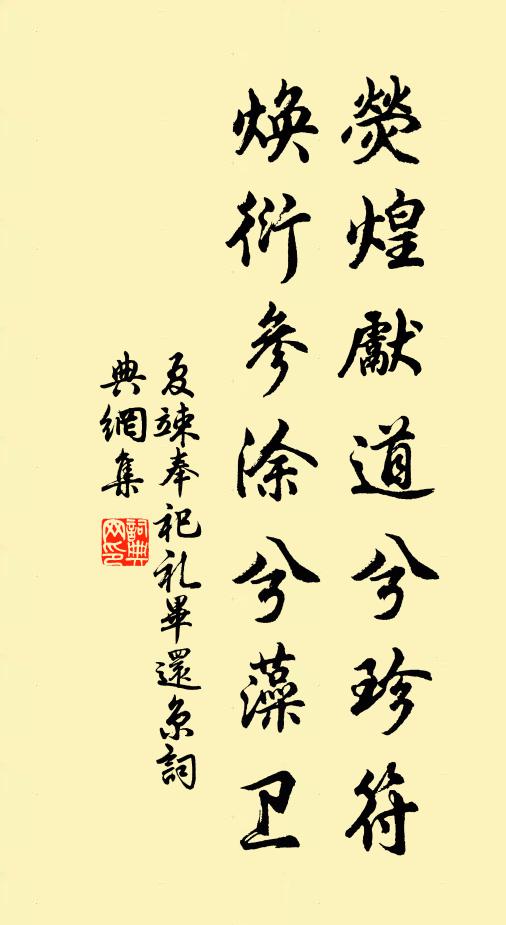 熒煌獻道兮珍符
煥衍參涂兮藻卫
夏竦奉祀礼畢還京詞
典網集
詞典网印